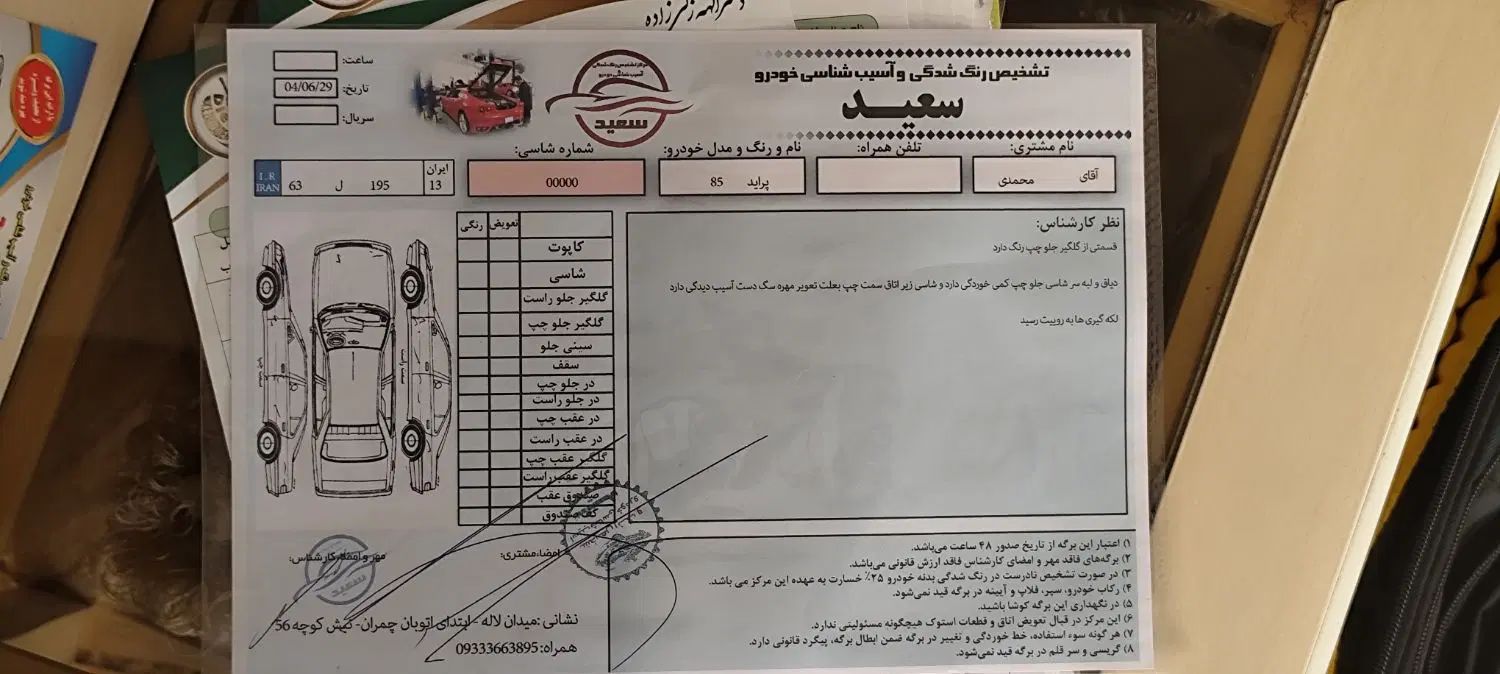 تشخیص رنگ شدگی و آسیب شناسی خودرو
سعید
مرکز تشخیص رنگ شدگی
آسیب شناسی خودرو
سعید
ساعت:
تاریخ: 04/06/29
سریال:
نام مشتری: آقای محمدی
تلفن همراه:
نام و رنگ و مدل خودرو: پراید 85
شماره شاسی: 00000
ایران 13
195 ل 63
I.R IRAN
نظر کارشناس:
قسمتی از گلگیر جلو چپ رنگ دارد
دیاق و لبه سر شاسی جلو چپ کمی خوردگی دارد و شاسی زیر اتاق سمت چپ بعلت تعویر مهره سگ دست آسیب دیدگی دارد
لکه گیری ها به روییت رسید
تعویض رنگی
کاپوت
شاسی
گلگیر جلو راست
گلگیر جلو چپ
سینی جلو
سقف
در جلو چپ
در جلو راست
در عقب چپ
در عقب راست
گلگیر عقب چپ
گلگیر عقب راست
صندوق عقب
کف صندوق
سمت چپ
سمت راست
مهر و امضاء کارشناس:
امضاء مشتری:
سعید
نشانی :میدان لاله - ابتدای اتوبان چمران- کیش کوچه 56
همراه: 09333663895
۱) اعتبار این برگه از تاریخ صدور ۴۸ ساعت می‌باشد.
۲) برگه‌های فاقد مهر و امضای کارشناس فاقد ارزش قانونی می‌باشد.
۳) در صورت تشخیص نادرست در رنگ شدگی بدنه خودرو ۲۵٪ خسارت به عهده این مرکز می باشد.
۴) رکاب خودرو، سپر، فلاپ و آیینه در برگه قید نمی‌شود.
۵) در نگهداری این برگه کوشا باشید.
۶) این مرکز در قبال تعویض اتاق و قطعات استوک هیچگونه مسئولیتی ندارد.
۷) هر گونه سوء استفاده، خط خوردگی و تغییر در برگه ضمن ابطال برگه، پیگرد قانونی دارد.
۸) گریسی و سر قلم در برگه قید نمی‌شود.